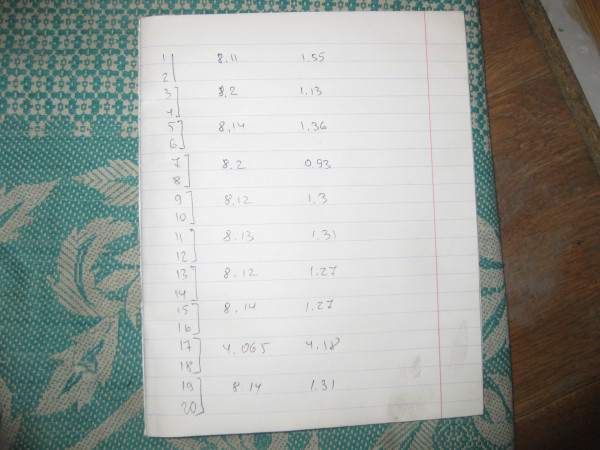 1 8.11 1.55
2
3 8.2 1.13
4
5 8.14 1.36
6
7 8.2 0.93
8
9 8.12 1.3
10
11 8.13 1.31
12
13 8.12 1.27
14
15 8.14 1.27
16
17 4.065 4.18
18
19 8.14 1.31
20